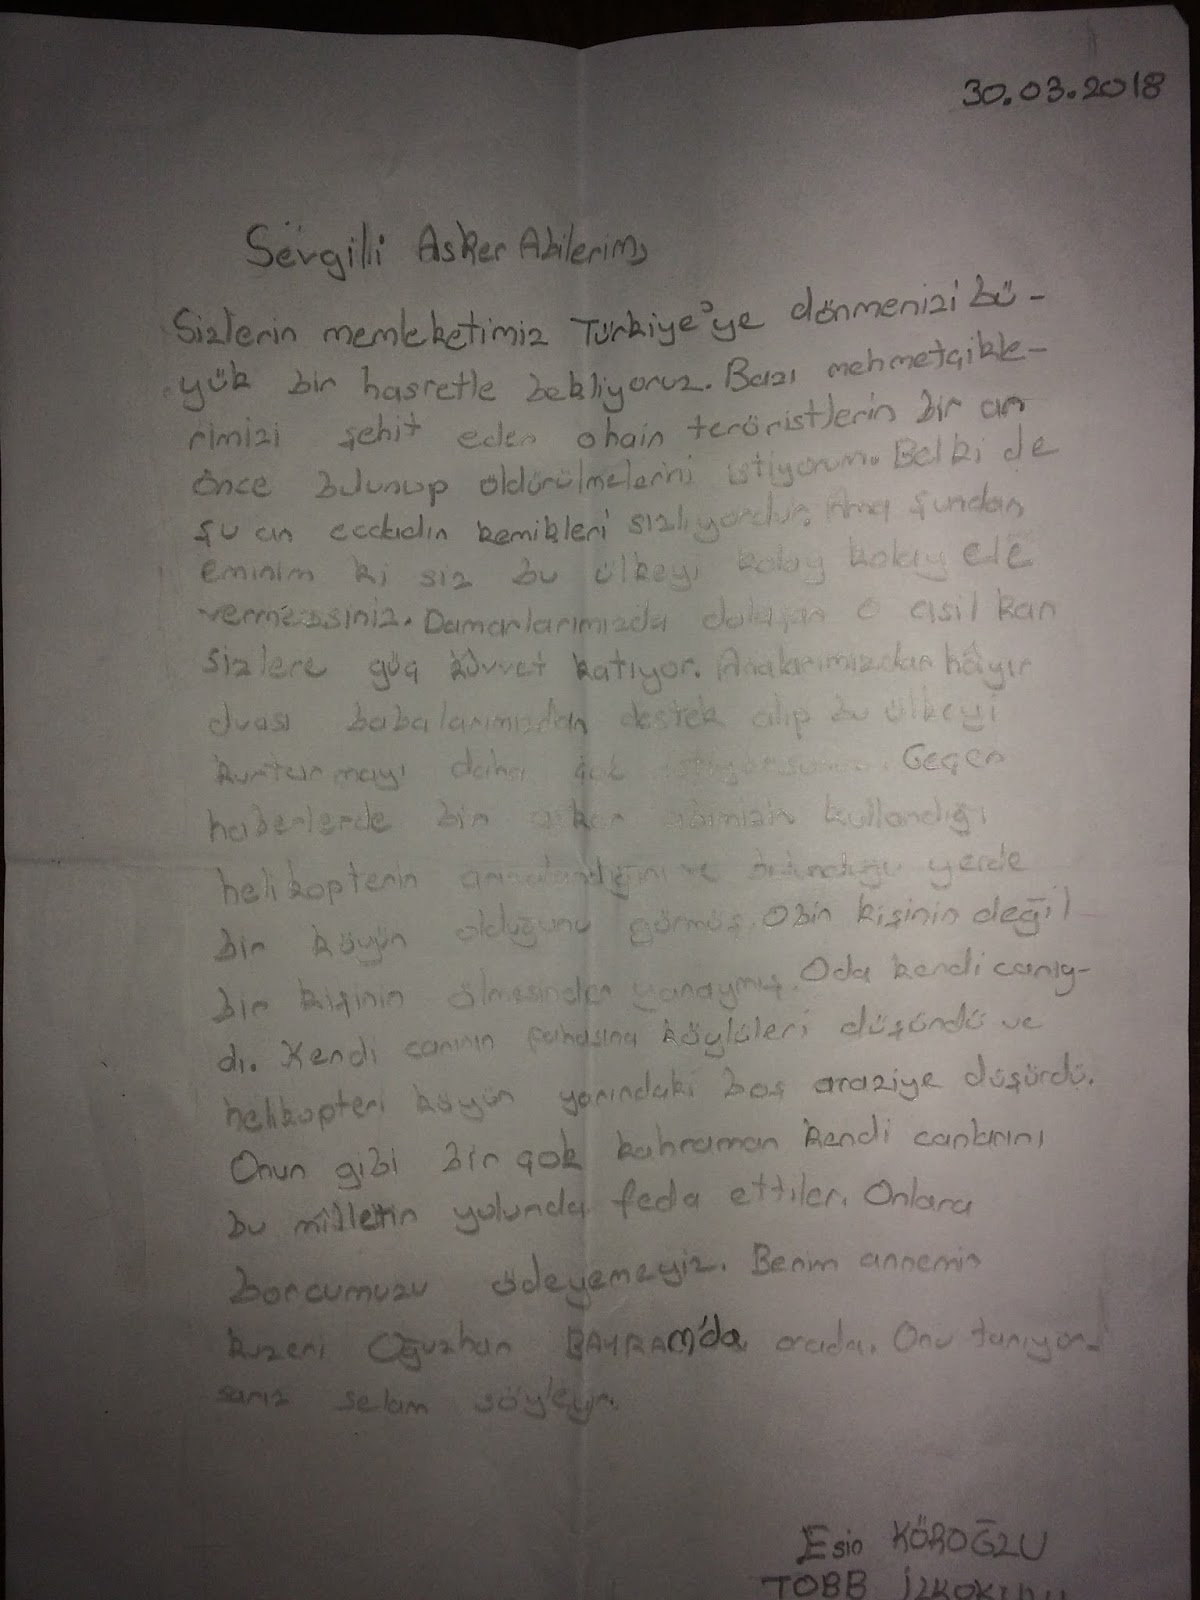 30.03.2018
Sevgilli Asker Abilerim,
Sizlerin memleketimiz Türkiye'ye dönmenizi bü-
yük bir hasretle bekliyoruz. Bazı mehmetçikle-
rimizi şehit eden o hain teröristlerin bir an
önce bulunup öldürülmelerini istiyorum. Belki de
şu an ecdadın kemikleri sızlıyordur. Ama şundan
eminim ki siz bu ülkeyi kolay kolay ele
vermezsiniz. Damarlarımızda dolaşan o asil kan
sizlere güç kuvvet katıyor. Analarımızdan hayır
duası babalarımızdan destek alıp bu ülkeyi
kurtarmayı daha çok istiyorsunuz. Geçen
haberlerde bir asker abimizin kullandığı
helikopterin arızalandığını ve bulunduğu yerde
bir köyün olduğunu görmüş. O bin kişinin değil
bir kişinin ölmesinden yanaymış. Oda kendi canıy-
dı. Kendi canının pahasına köylüleri düşündü ve
helikopteri köyün yanındaki boş araziye düşürdü.
Onun gibi bir çok kahraman kendi canlarını
bu milletin yolunda feda ettiler. Onlara
borcumuzu ödeyemeyiz. Benim annemin
kuzeni Oğuzhan BAYRAM'da orada. Onu tanıyor-
sanız selam söyleyin.
Esin KÖROĞLU
TOBB İLKOKULU